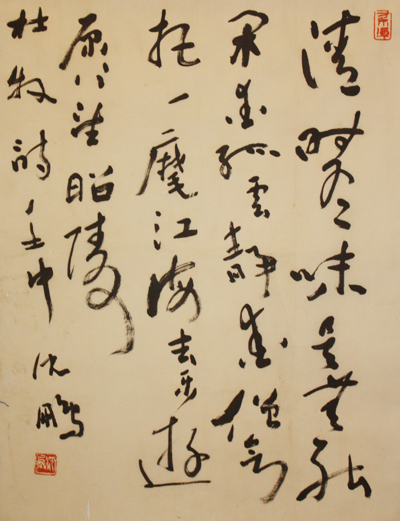 清時有味是無能
閑愛孤雲靜愛僧欲
把一麾江海去樂遊
原上望昭陵
杜牧詩 壬申 沈鵬